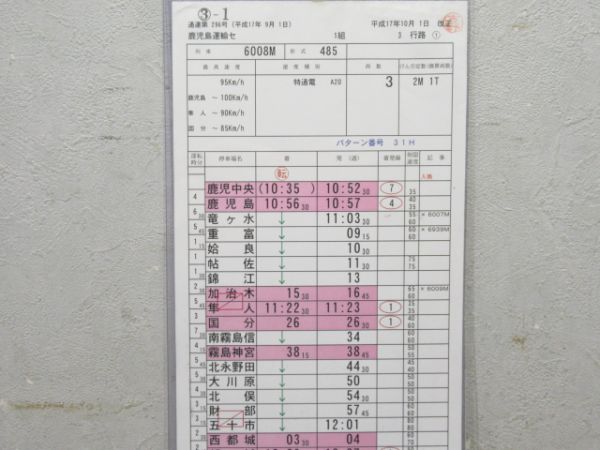 ③-1
通達第 296号 (平成17年 9月 1日) 平成17年10月 1日 改正
鹿児島運輸セ 1組 3 行路 ①
列車 6008M 形式 485
最高速度 速度種別 両数 けん引定数(換算両数)
95Km/h 特通電 A20 3 2M 1T
鹿児島 ～ 100Km/h
隼人 ～ 90Km/h
国分 ～ 85Km/h
パターン番号 31H
運転時分 停車場名 着 発(通) 着発線 制限速度 記事
転
鹿児中央 (10:35 ) 10:52 30 7 35
4 鹿児島 10:56 30 10:57 4 40 35
6 30 竜ヶ水 ↓ 11:03 30 55 60 × 6007M
5 45 重富 ↓ 09 15 60 × 6939M
姶良 ↓ 10 30
帖佐 ↓ 11 30 75 75
錦江 ↓ 13
加治木 15 30 16 45 65 60 × 6009M
隼人 11:22 30 11:23 1
国分 26 26 30 1
南霧島信 ↓ 34
霧島神宮 38 15 38 45
北永野田 ↓ 44 30
大川原 ↓ 50
北俣 ↓ 54 30
財部 ↓ 57 45
五十市 ↓ 12:01
西都城 03 30 04